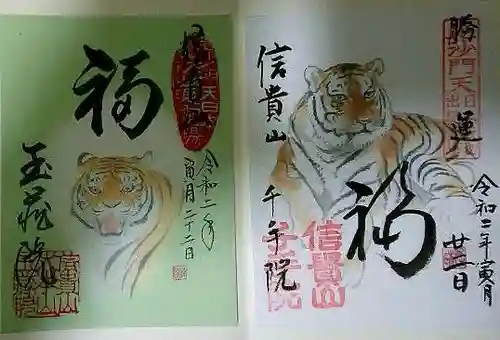 福
信貴山
玉蔵院
令和二年
寅月二十二日
勝運
毘沙門天
出現
信貴山
千手院
福
令和二年寅月
廿二日
信貴山
千手院